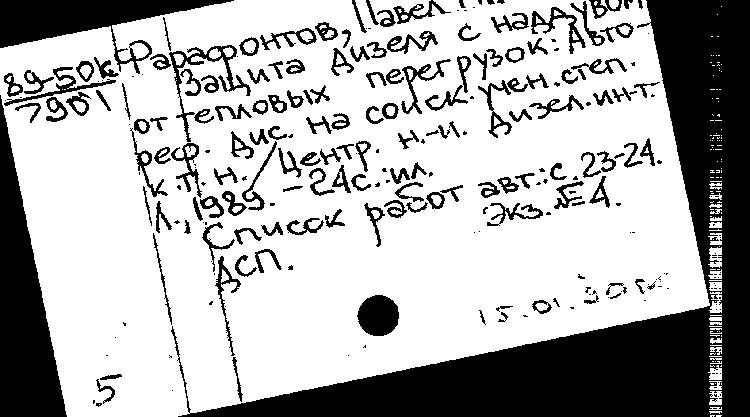 89-50к
7901
Фарафонтов, Павел
Защита дизеля с наддувом
от тепловых перегрузок: Авто-
реф. дис. на соиск. учен. степ.
к.т.н. / Центр. н.-и. дизел. ин-т.-
Л., 1989. - 24с.: ил.
Список работ авт.: с. 23-24.
Экз. № 4.
ДСП.
15.01.90
5